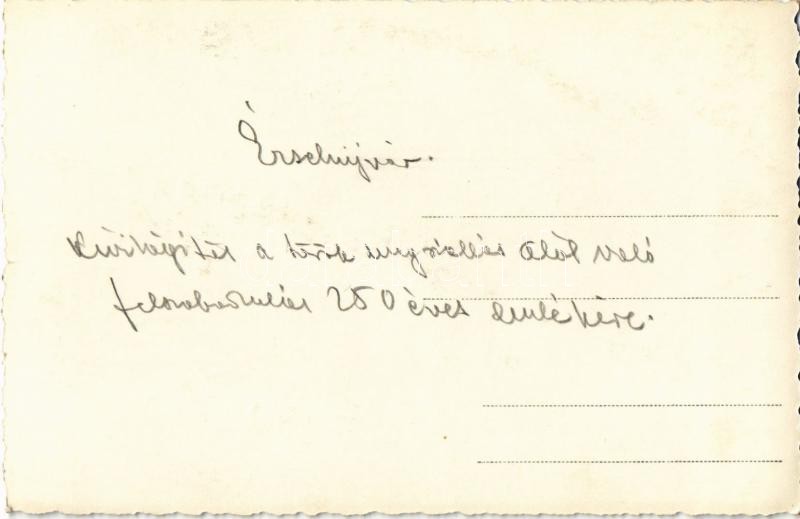 Érsekújvár.
Kivilágítás a török megszállás alól való
felszabadulás 250 éves emlékére.